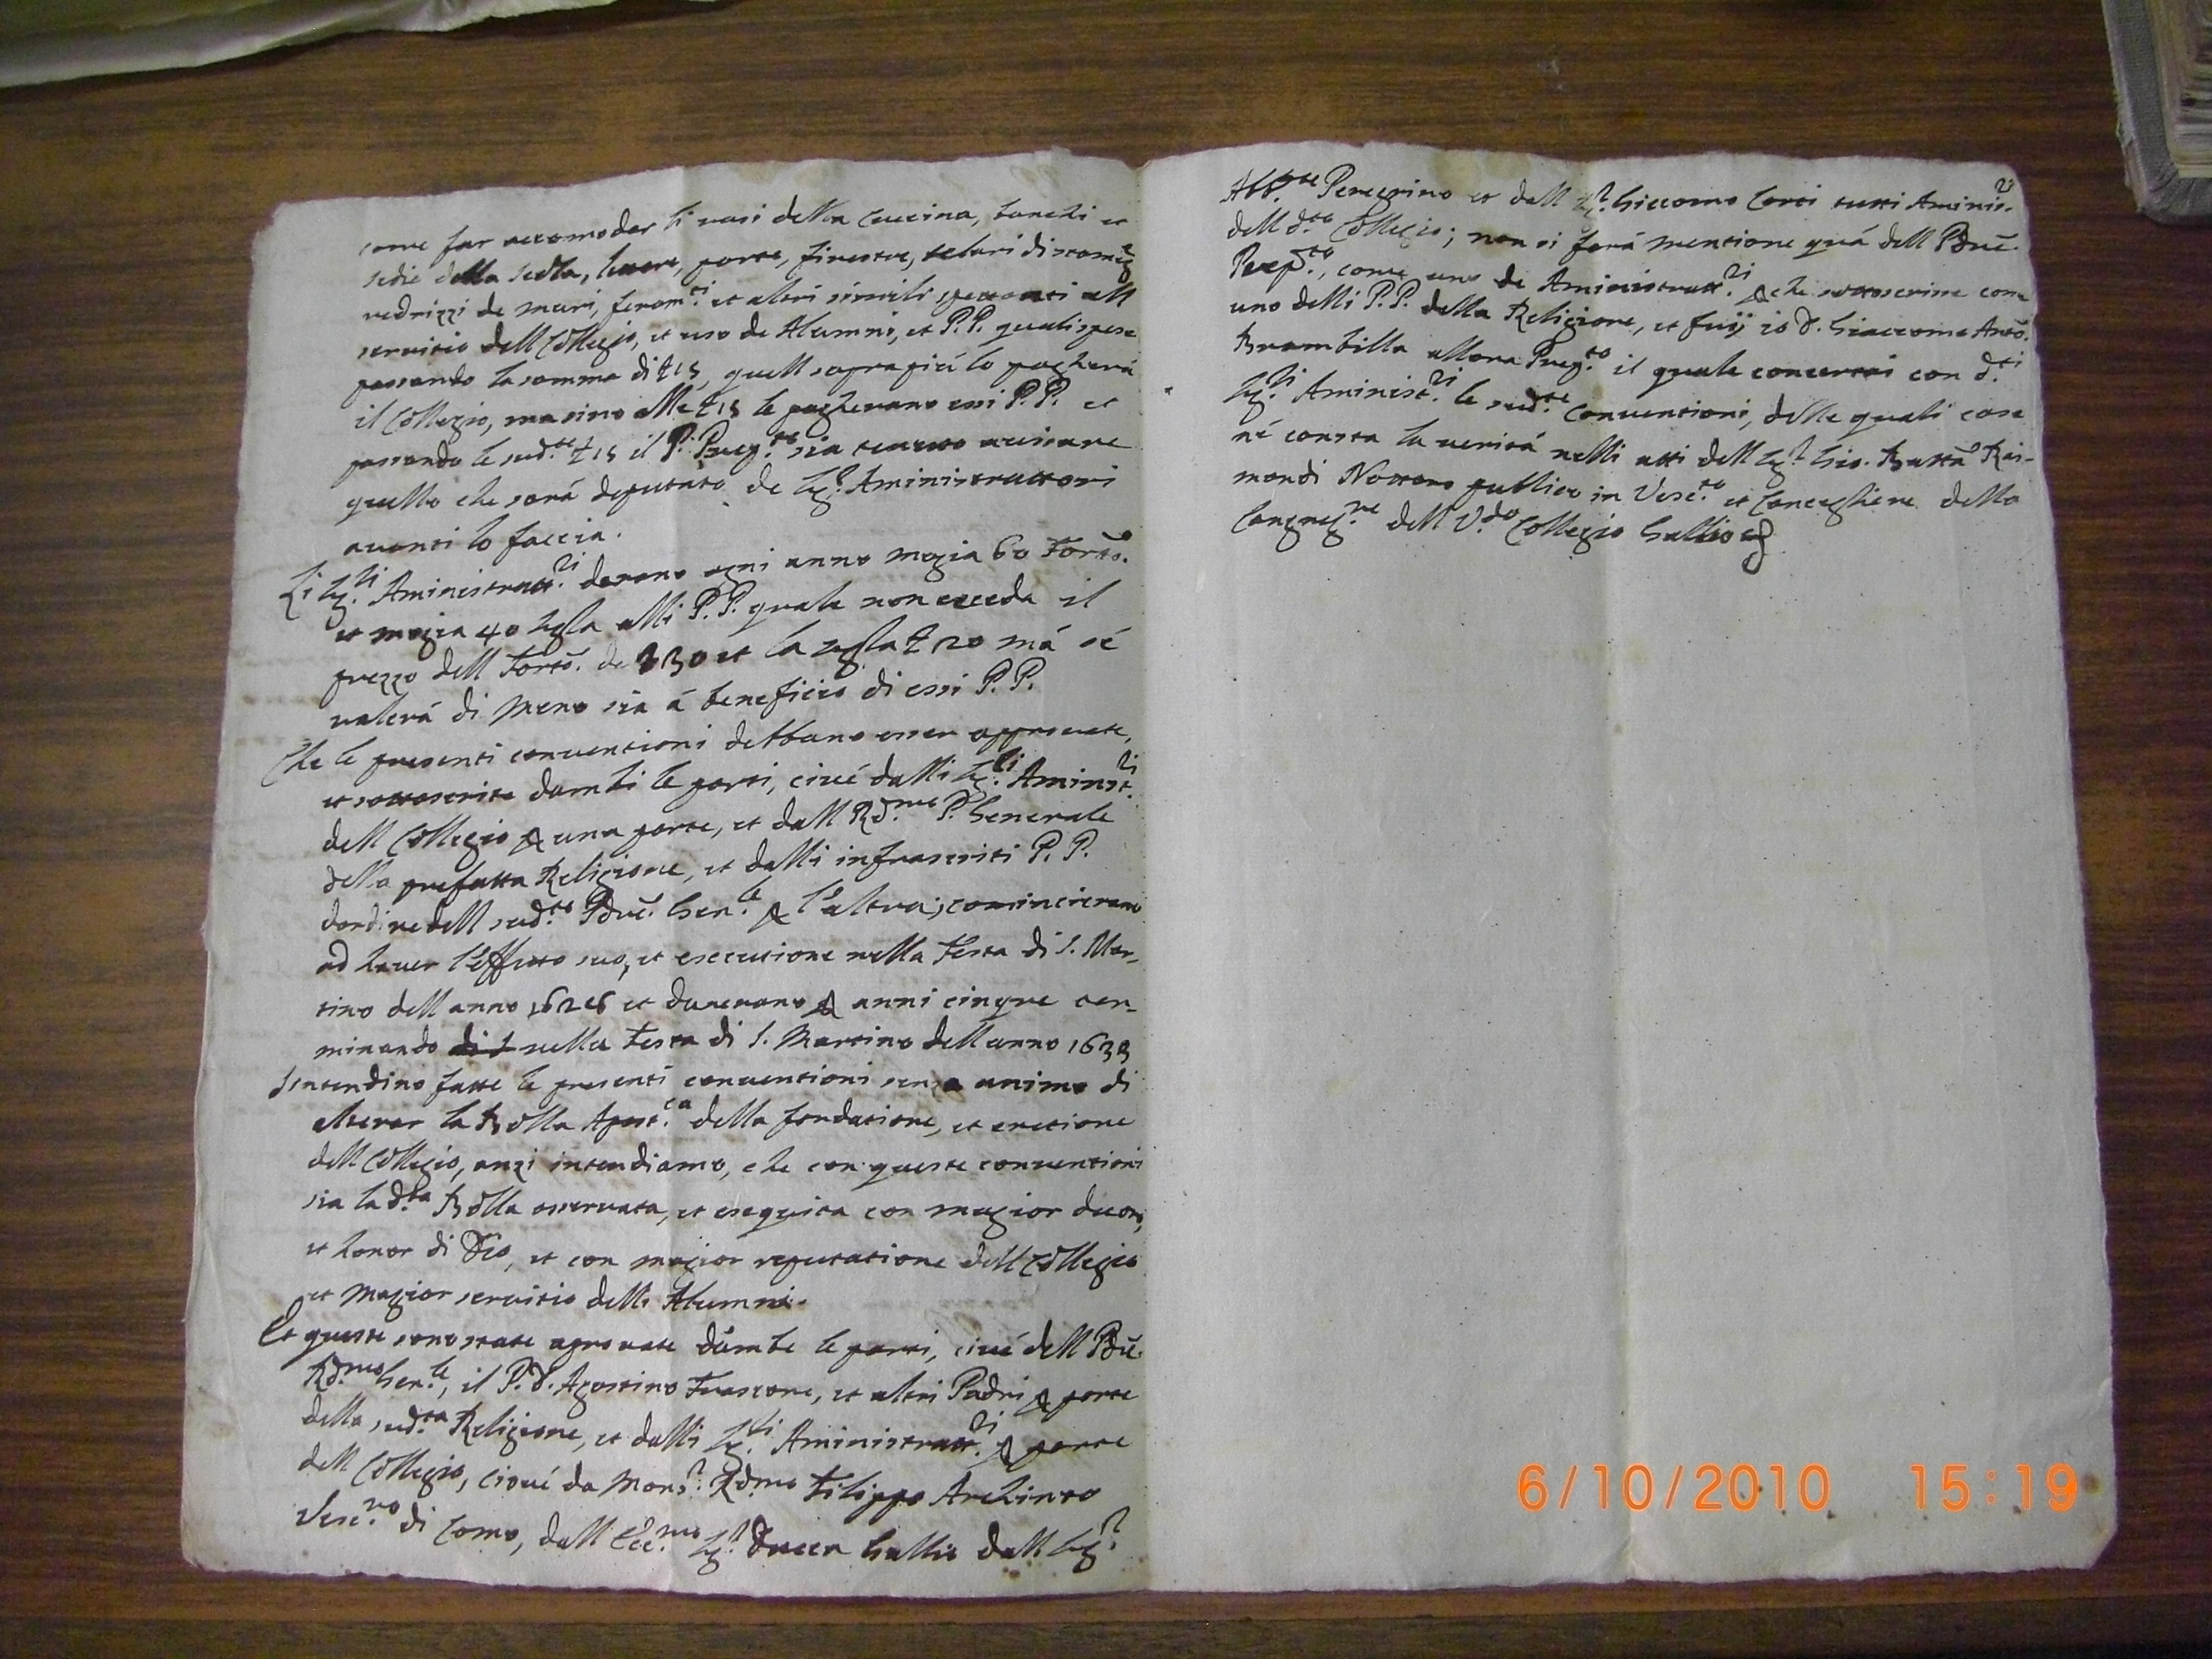 come far accomodar li vasi della cuccina, banchi et
sedie della scola, lettere, porte, finestre, telari di
vedrizzi de muri, feram.ti et altri simili spettanti all
servitio dell Collegio, et uso de Alumni, et P.P. quali spese
passando la somma di £ 15, quell sopra più lo pagherà
il Collegio, ma sino alle £ 15 le pagherano essi P.P. et
passando le sud.te £ 15 il P. Prep.to sia tenuto avisare
quello che sarà deputato de Sig.ri Aministrattori
avanti lo faccia.
Li Sig.ri Aministratt.ri darano ogni anno mogia 60 Form.to
et mogia 40 segla alli P.P. quale non exceda il
prezzo dell Form.to de £ 30 et la segla £ 20 mà sè
valerà di meno sia à beneficio di essi P.P.
Che le presenti conventioni debbano esser approvate,
et sottoscritte dambi le parti, cioè dalli Sig.ri Aminist.ri
dell Collegio p una parte, et dall R.d.mo P. Generale
della prefatta Religione, et dalli infrascritti P.P.
dordine dell sud.to P.dre Gen.le p l'altra; comincierano
ad haver l'effetto suo, et esecutione nella festa di S. Mar-
tino dell anno 1628 et durerano p anni cinque ter-
minando nella festa di S. Martino dell anno 1633
Intendino fatte le presenti conventioni senza animo di
alterar la Bolla Apost.ca della fondatione, et eretione
dell Collegio, anzi intendiamo, che con queste conventioni
sia la d.ta Bolla osservata, et eseguita con magior decoro,
et honor di Dio, et con magior reputatione dell Collegio
et magior servitio delli Alumni.
Et queste sono state aprovate dambe le parti, cioè dell P.dre
R.d.mo Gen.le, il P. D. Agostino Frascone, et altri Padri p parte
della sud.ta Religione, et dalli Sig.ri Aministratt.ri p parte
dell Collegio, cioè da Mons.r R.d.mo Filippo Archinto
Vesc.vo di Como, dall Ecc.mo Sig.r Ducca Gallio dall Sig.r
2
Abb.te Peregrino et dall Sig.r Giccomo Corti tutti Aminis.
dell d.to Collegio; non si farà mentione quà dell P.dre
Prep.to, come uno de Aministratt.ri p che sottoscrisse come
uno delli P.P. della Religione, et fuij io D. Giaccomo Ant.o
Brambilla allora Prep.to il quale concertai con d.ti
Sig.ri Aminist.ri le sud.te conventioni, delle quali cose
né consta la verità nelli atti dell Sig.r Gio. Batta Rai-
mondi Nottaro publico in Vesc.to et Canceghiere della
Congreg.ne dell V.do Collegio Gallio
6/10/2010 15:19